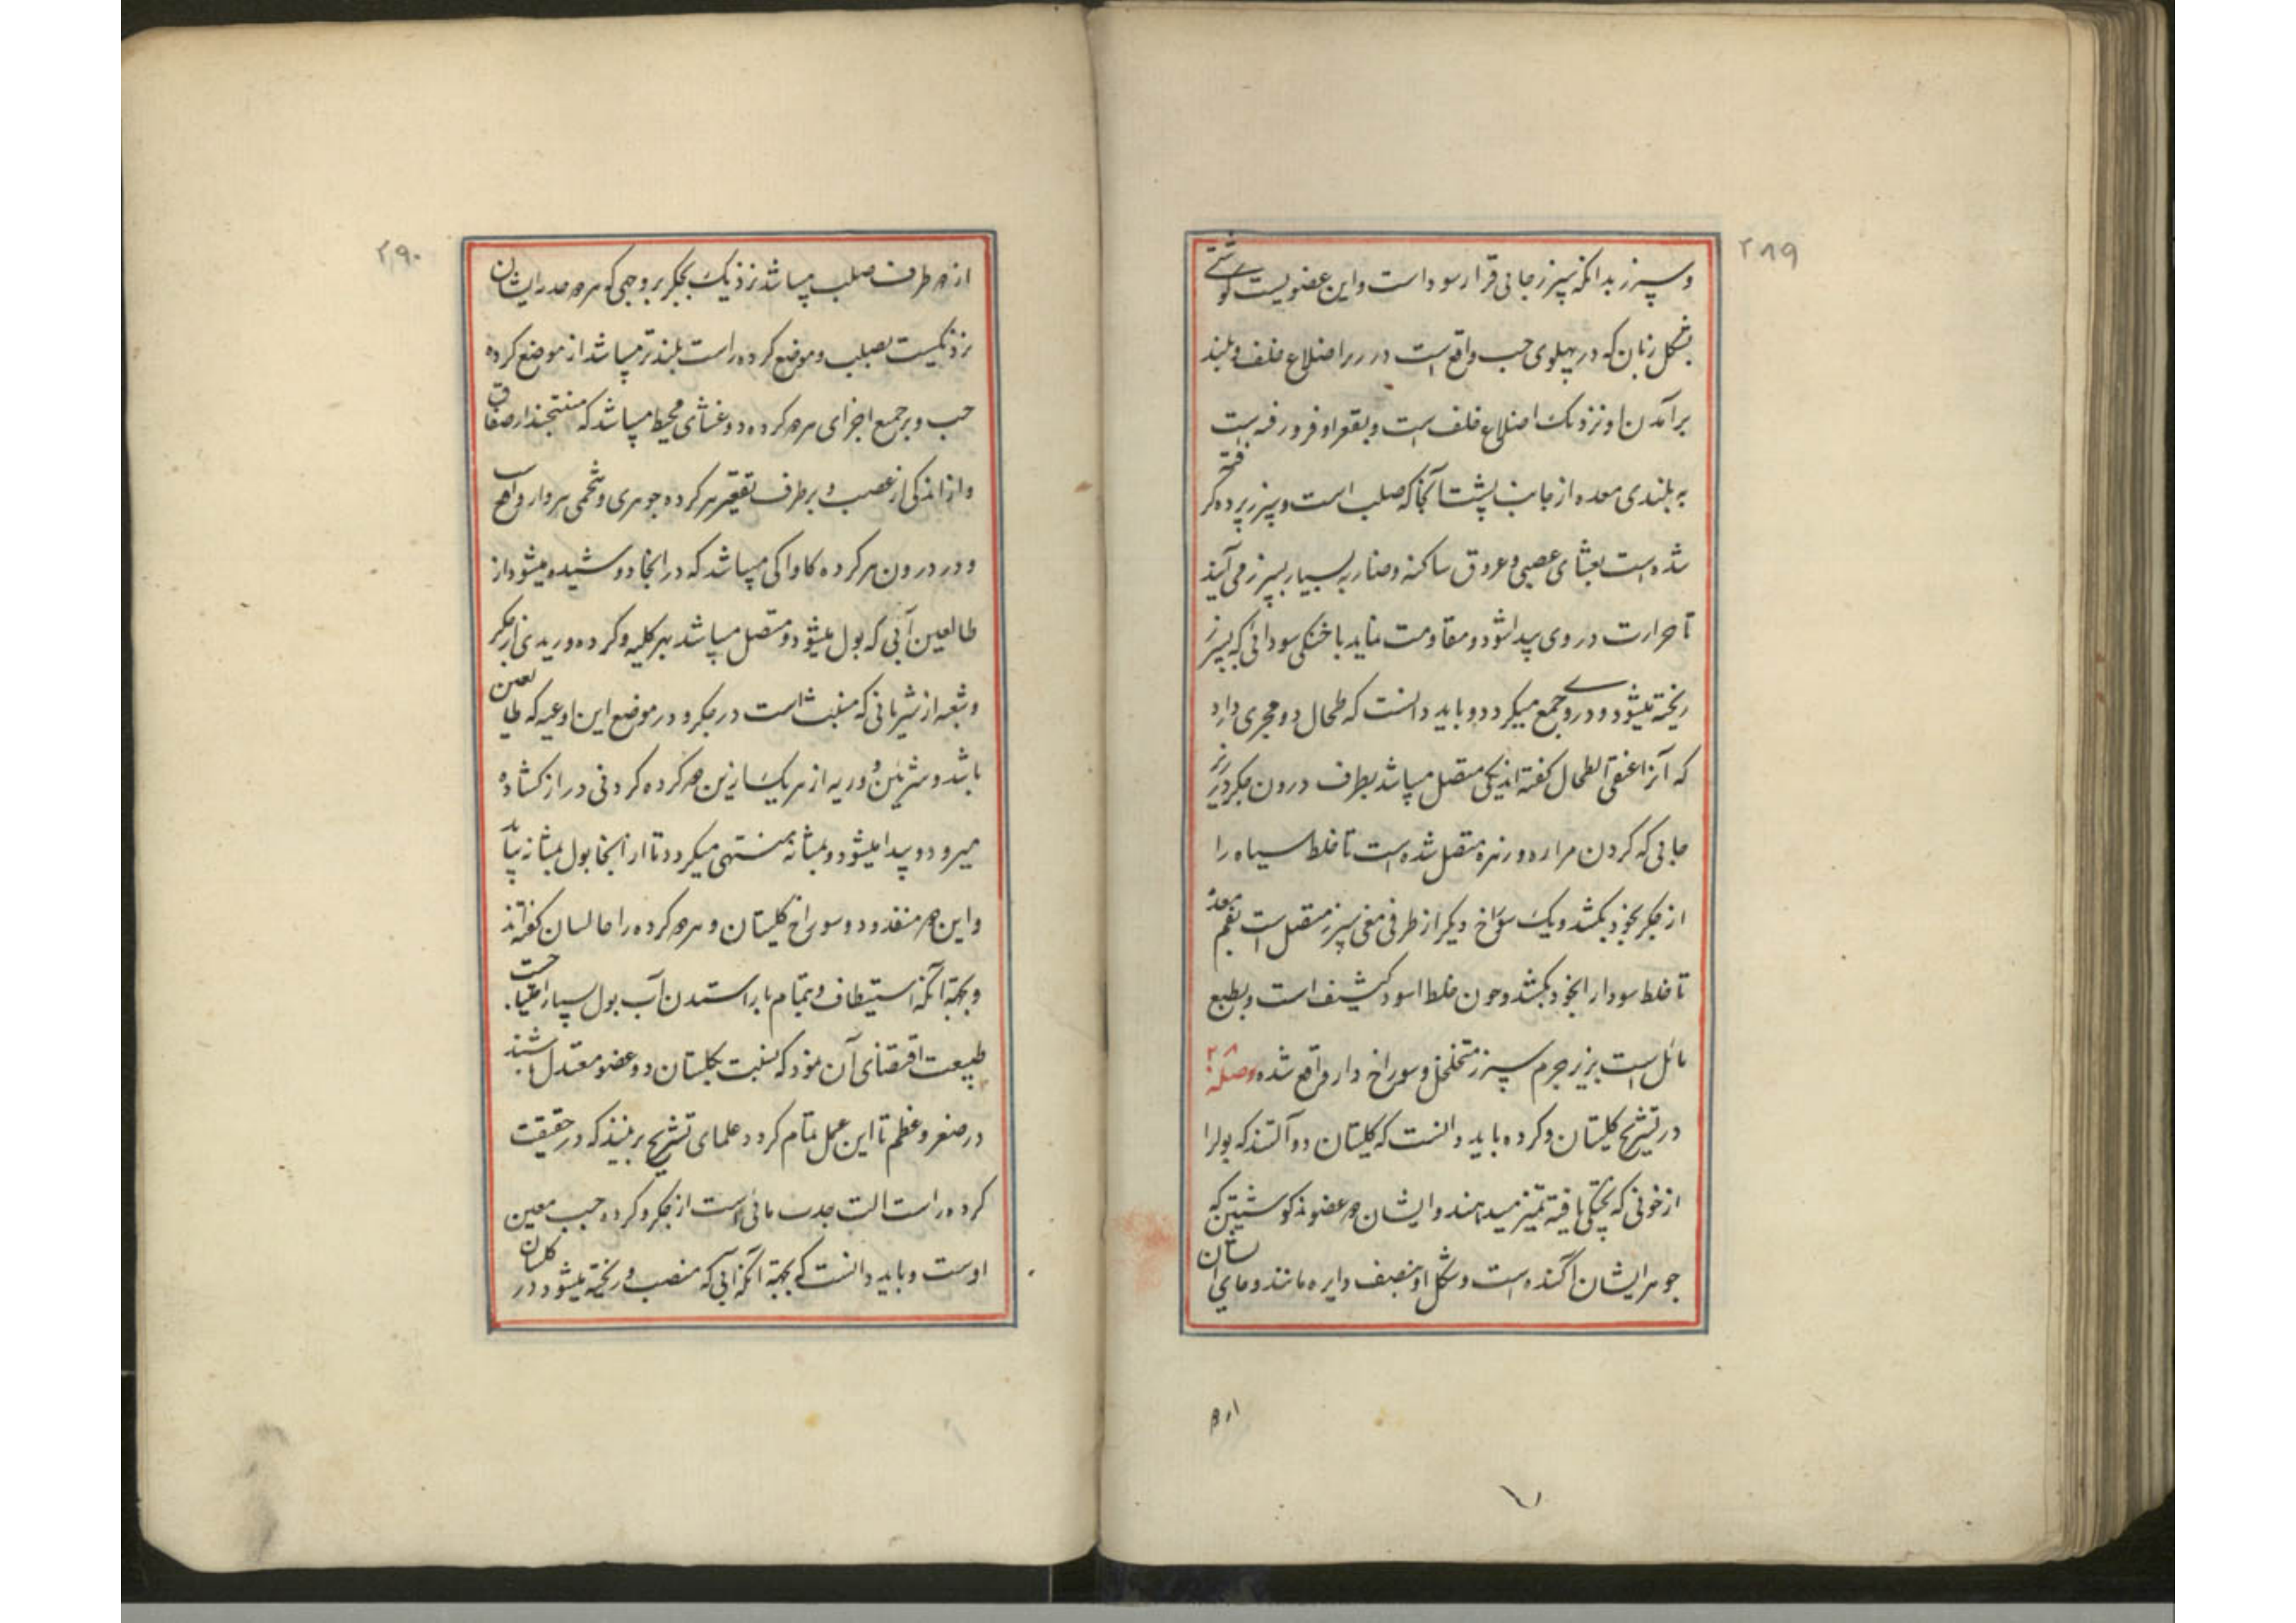 ۲۸۹
و سپرز بدانکه سپرز جائی قرار سوداست و این عضویست گوشتی
بشکل زبان که در پهلوی چپ واقع است در زیر اضلاع خلف و بلند
برآمدن او نزدیک اضلاع خلف است و بقعر او فرو رفته است
به بلندی معده از جانب پشت آنجا که صلب است و سپرز پرده کر
شده است بغشای عصبی و عروق ساکنه و ضاربه بسیار بسپرز می آیند
تا حرارت در وی پیدا شود و مقاومت نماید با خنکی سودائی که بسپرز
ریخته میشود و در وی جمع میکردد و باید دانست که طحال دو مجری دارد
که آنرا عنقی الطحال کفته اند یکی متصل میباشد بطرف درون جکر در زیر
جائی که کردن مراره و زهره متصل شده است تا خلط سیاه را
از جکر بخود بکشد و یک سوراخ دیکر از طرفی سپرز متصل است بفم معده
تا خلط سودا را بخود بکشد و چون خلط اسود کثیف است و بطبع
مائل است بزیر جرم سپرز متخلخل و سوراخ دار واقع شده وصله
در تشریح کلیتان و کرده باید دانست که کلیتان دو آلتند که بول را
از خونی که پختکی یافته تمیز میدهند و ایشان هر عضو مذکوشتین که
جوهر ایشان آکنده است و شکل او بنصف دایره مانند و جای ایشان
۲۹۰
از هر طرف صلب میباشد نزدیک بجکر بر وجهی که هر دو ایشان
نزدیکیست بصلب و موضع کرده راست بلندتر میباشد از موضع کرده
چپ و بر جمیع اجزای هر کرده دو غشای محیط میباشد که منتجند از صفاق
و از اندکی از عصب و بر طرف تقعیر هر کرده جوهری و شحمی هر دار واقع
و در درون هر کرده کاواکی میباشد که در انجا دوشیده میشود از
طالعین آبی که بول میشود و متصل میباشد بهر کلیه و کرده وریدی از جکر
و شعبه از شریانی که منبث است در جکر و در موضع این اوعیه که طالعین
باشد و شریان و ورید از هر یک ازین هر کرده کردنی دراز کشاده
میرود و پیدا میشود و بمثانه منتهی میکردد تا از انجا بول بمثانه بیاید
و این هر منفذ و دو سوراخ کلیتان و هر کرده را حالبان کفته اند
و بجهة آنکه استیطاف و بتمام باز استدن آب بول بسیار احتیاجست
طبیعت اقتضای آن نمود که نسبت بکلیتان دو عضو معتدل باشند
در صغر و عظم تا این عمل بتمام کردد علمای تشریح برینند که در حقیقت
کرده راست الت جذب مائی است از جکر و کرده چپ معین
اوست و باید دانست که بجهة آنکه آبی که منصب و ریخته میشود در کلیتان